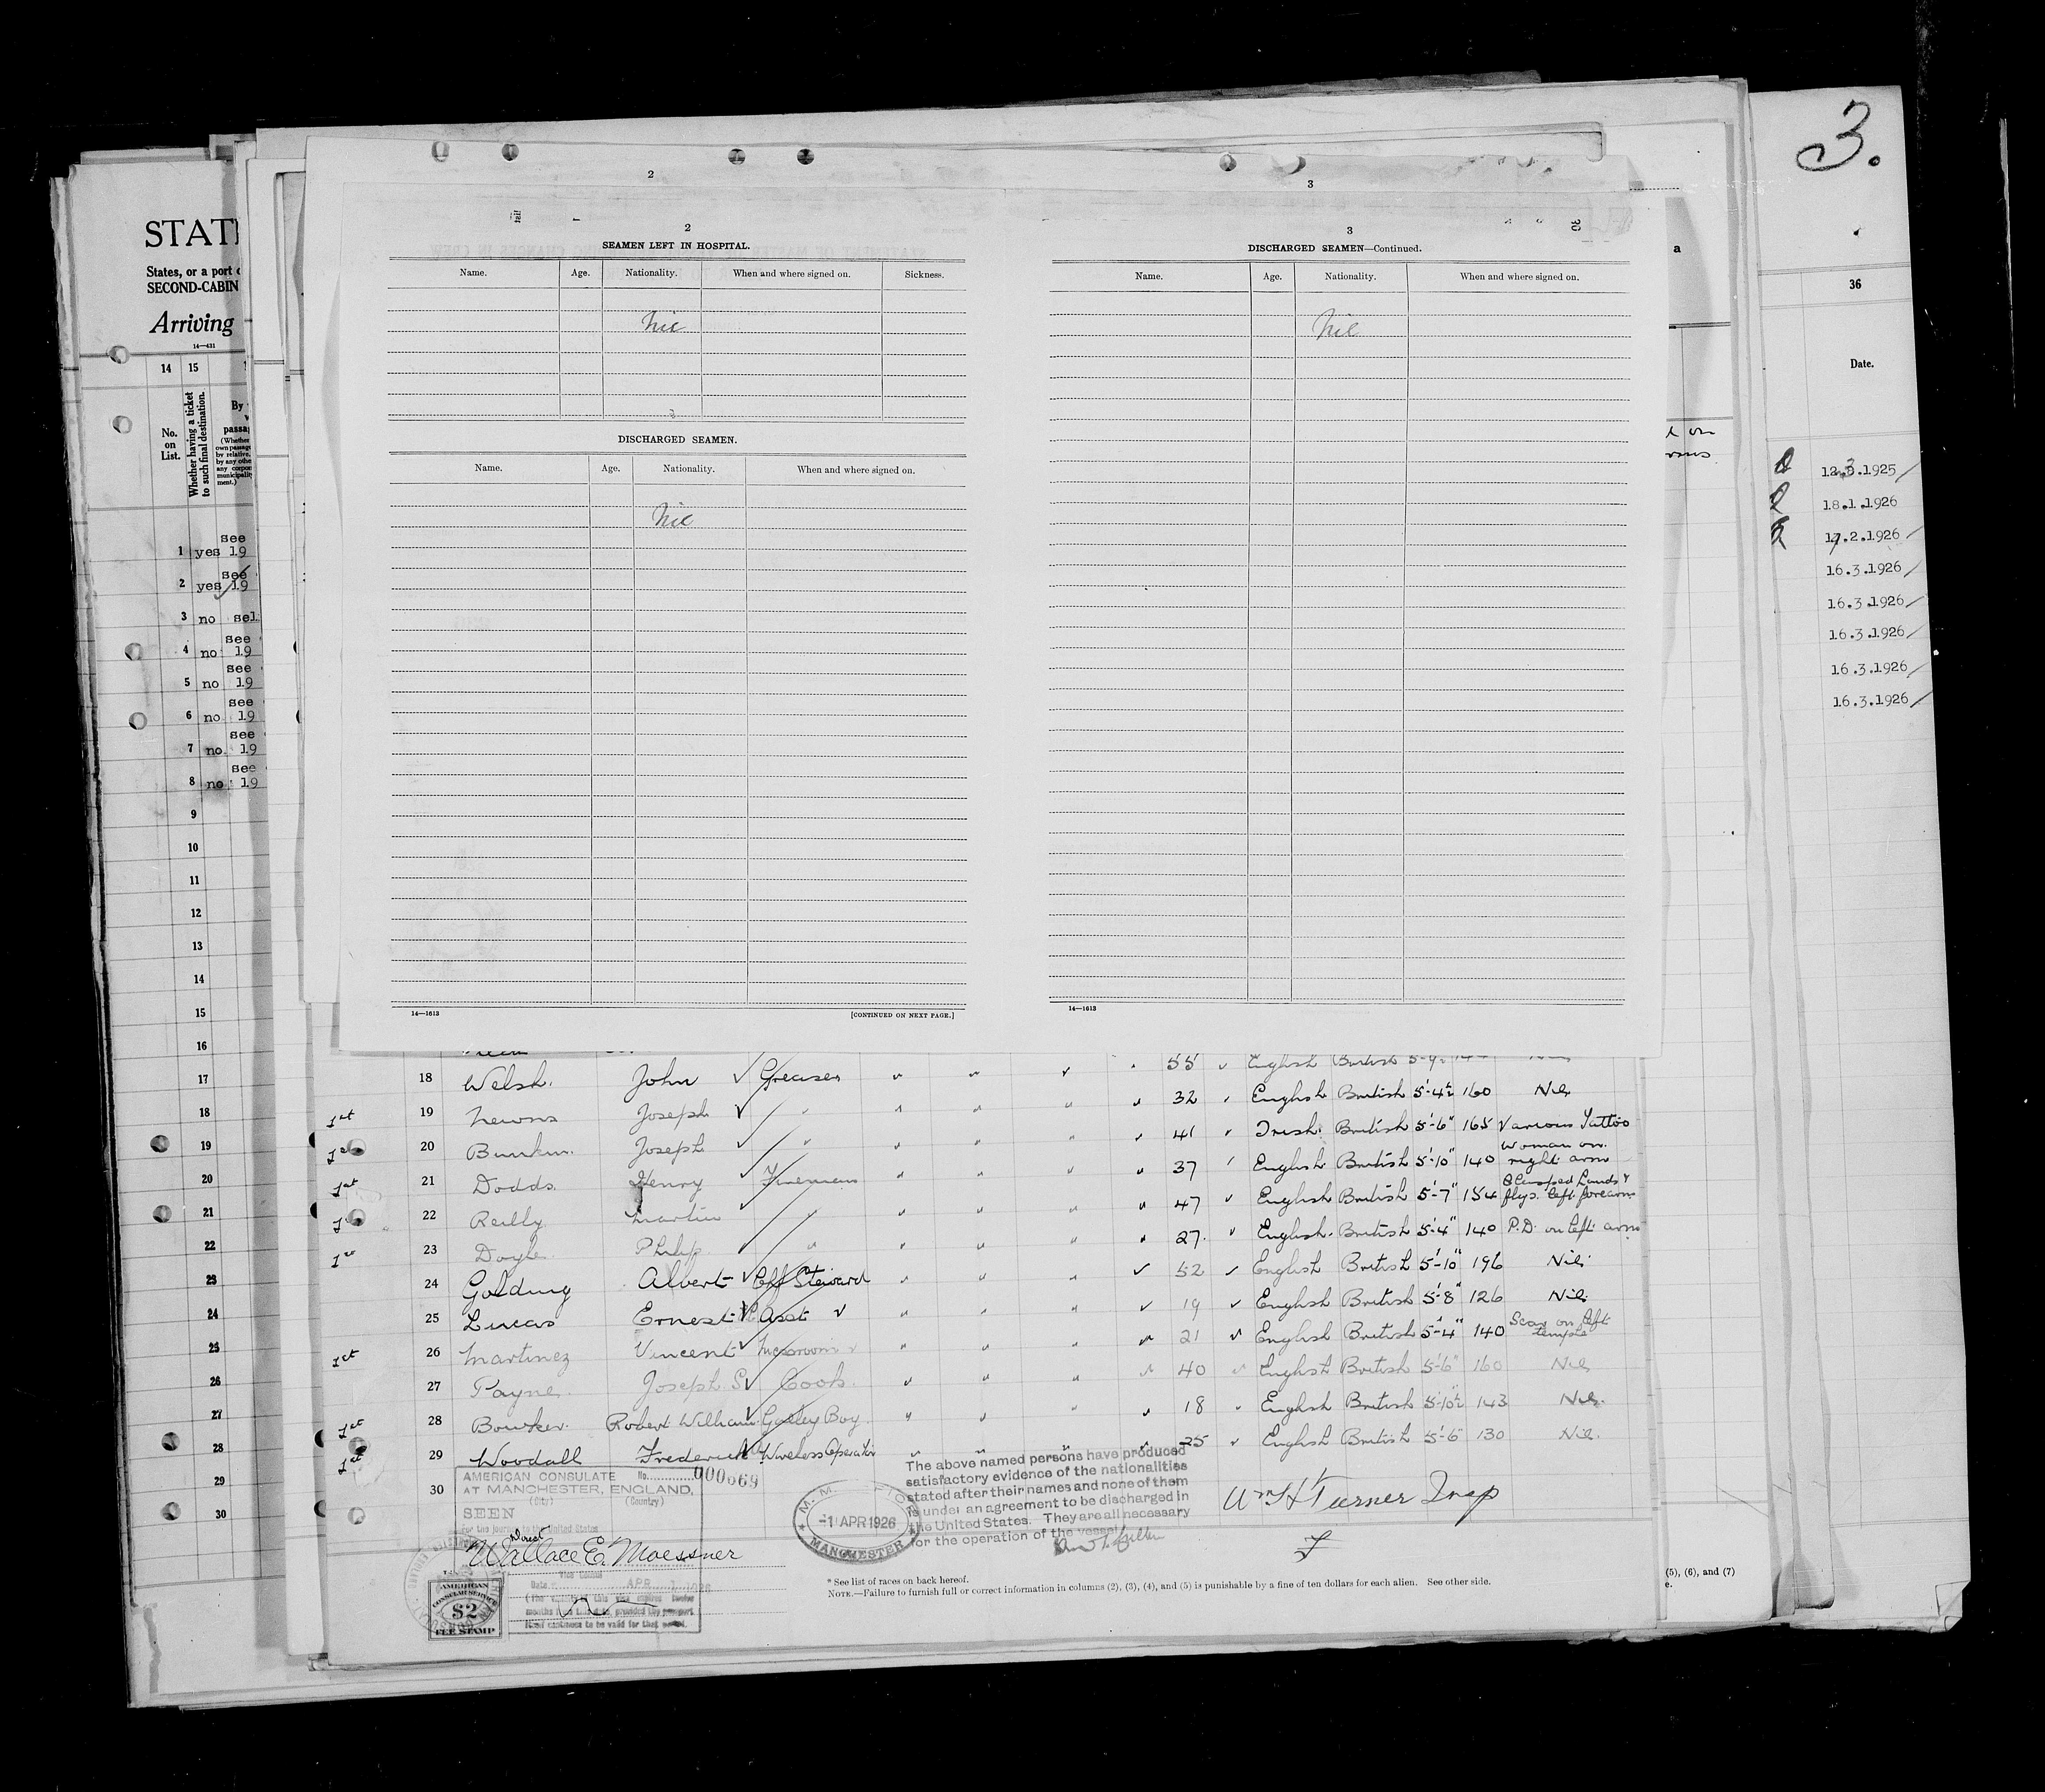 3.
STAT
States, or a port
SECOND-CABIN
Arriving
14—431
14 15
No. on List.
Whether having a ticket to such final destination.
By
passa
1 yes see 19
2 yes see 19
3 no sel
4 no see 19
5 no see 19
6 no see 19
7 no see 19
8 no see 19
9
10
11
12
13
14
15
16
17
18
19
20
21
22
23
24
25
26
27
28
29
30
2
2
SEAMEN LEFT IN HOSPITAL.
Name. Age. Nationality. When and where signed on. Sickness.
Nil
DISCHARGED SEAMEN.
Name. Age. Nationality. When and where signed on.
Nil
14—1613 [CONTINUED ON NEXT PAGE.]
3
3
DISCHARGED SEAMEN—Continued.
Name. Age. Nationality. When and where signed on.
Nil
14—1613
a
36
Date.
12.3.1925
18.1.1926
17.2.1926
16.3.1926
16.3.1926
16.3.1926
16.3.1926
16.3.1926
55 English British
18 Welsh. John Greaser 32 English British 5'-4½ 160 Nil
1st 19 Newns Joseph " 41 Irish. British 5'-6" 165 Various Tattoo
1st 20 Bunkin. Joseph " 37 English British 5'-10" 140 Woman on right arm
1st 21 Dodds. Henry Fireman 47 English British 5'-7" 154 Clasped hands & flags. left forearm
1st 22 Reilly Martin " 27. English. British 5'-4" 140 P.D. on left arm
1st 23 Doyle Philip "
24 Golding Albert Chf Steward 52 English British 5'-10" 196 Nil
25 Lucas Ernest Asst 19 English British 5'-8" 126 Nil
1st 26 Martinez Vincent Messroom 21 English British 5'-4" 140 Scar on left temple
27 Payne. Joseph S Cook. 40 English British 5'-6" 160 Nil
1st 28 Bowker. Robert William Galley Boy 18 English British 5'-10½ 143 Nil.
1st 29 Woodall Frederick Wireless Operator 25 English British 5'-6 130 Nil.
30
AMERICAN CONSULATE No. 000669
AT MANCHESTER, ENGLAND,
(City) (Country)
SEEN
For the journey to the United States
Direct
Wallace E. Moessner
Vice Consul
Date APR 1 1926
AMERICAN
CONSULAR SERVICE
$2
FEE STAMP
-1 APR 1926
MANCHESTER
The above named persons have produced
satisfactory evidence of the nationalities
stated after their names and none of them
is under an agreement to be discharged in
the United States. They are all necessary
for the operation of the vessel.
Wm H Turner Insp
* See list of races on back hereof.
NOTE.—Failure to furnish full or correct information in columns (2), (3), (4), and (5) is punishable by a fine of ten dollars for each alien. See other side.
(5), (6), and (7)